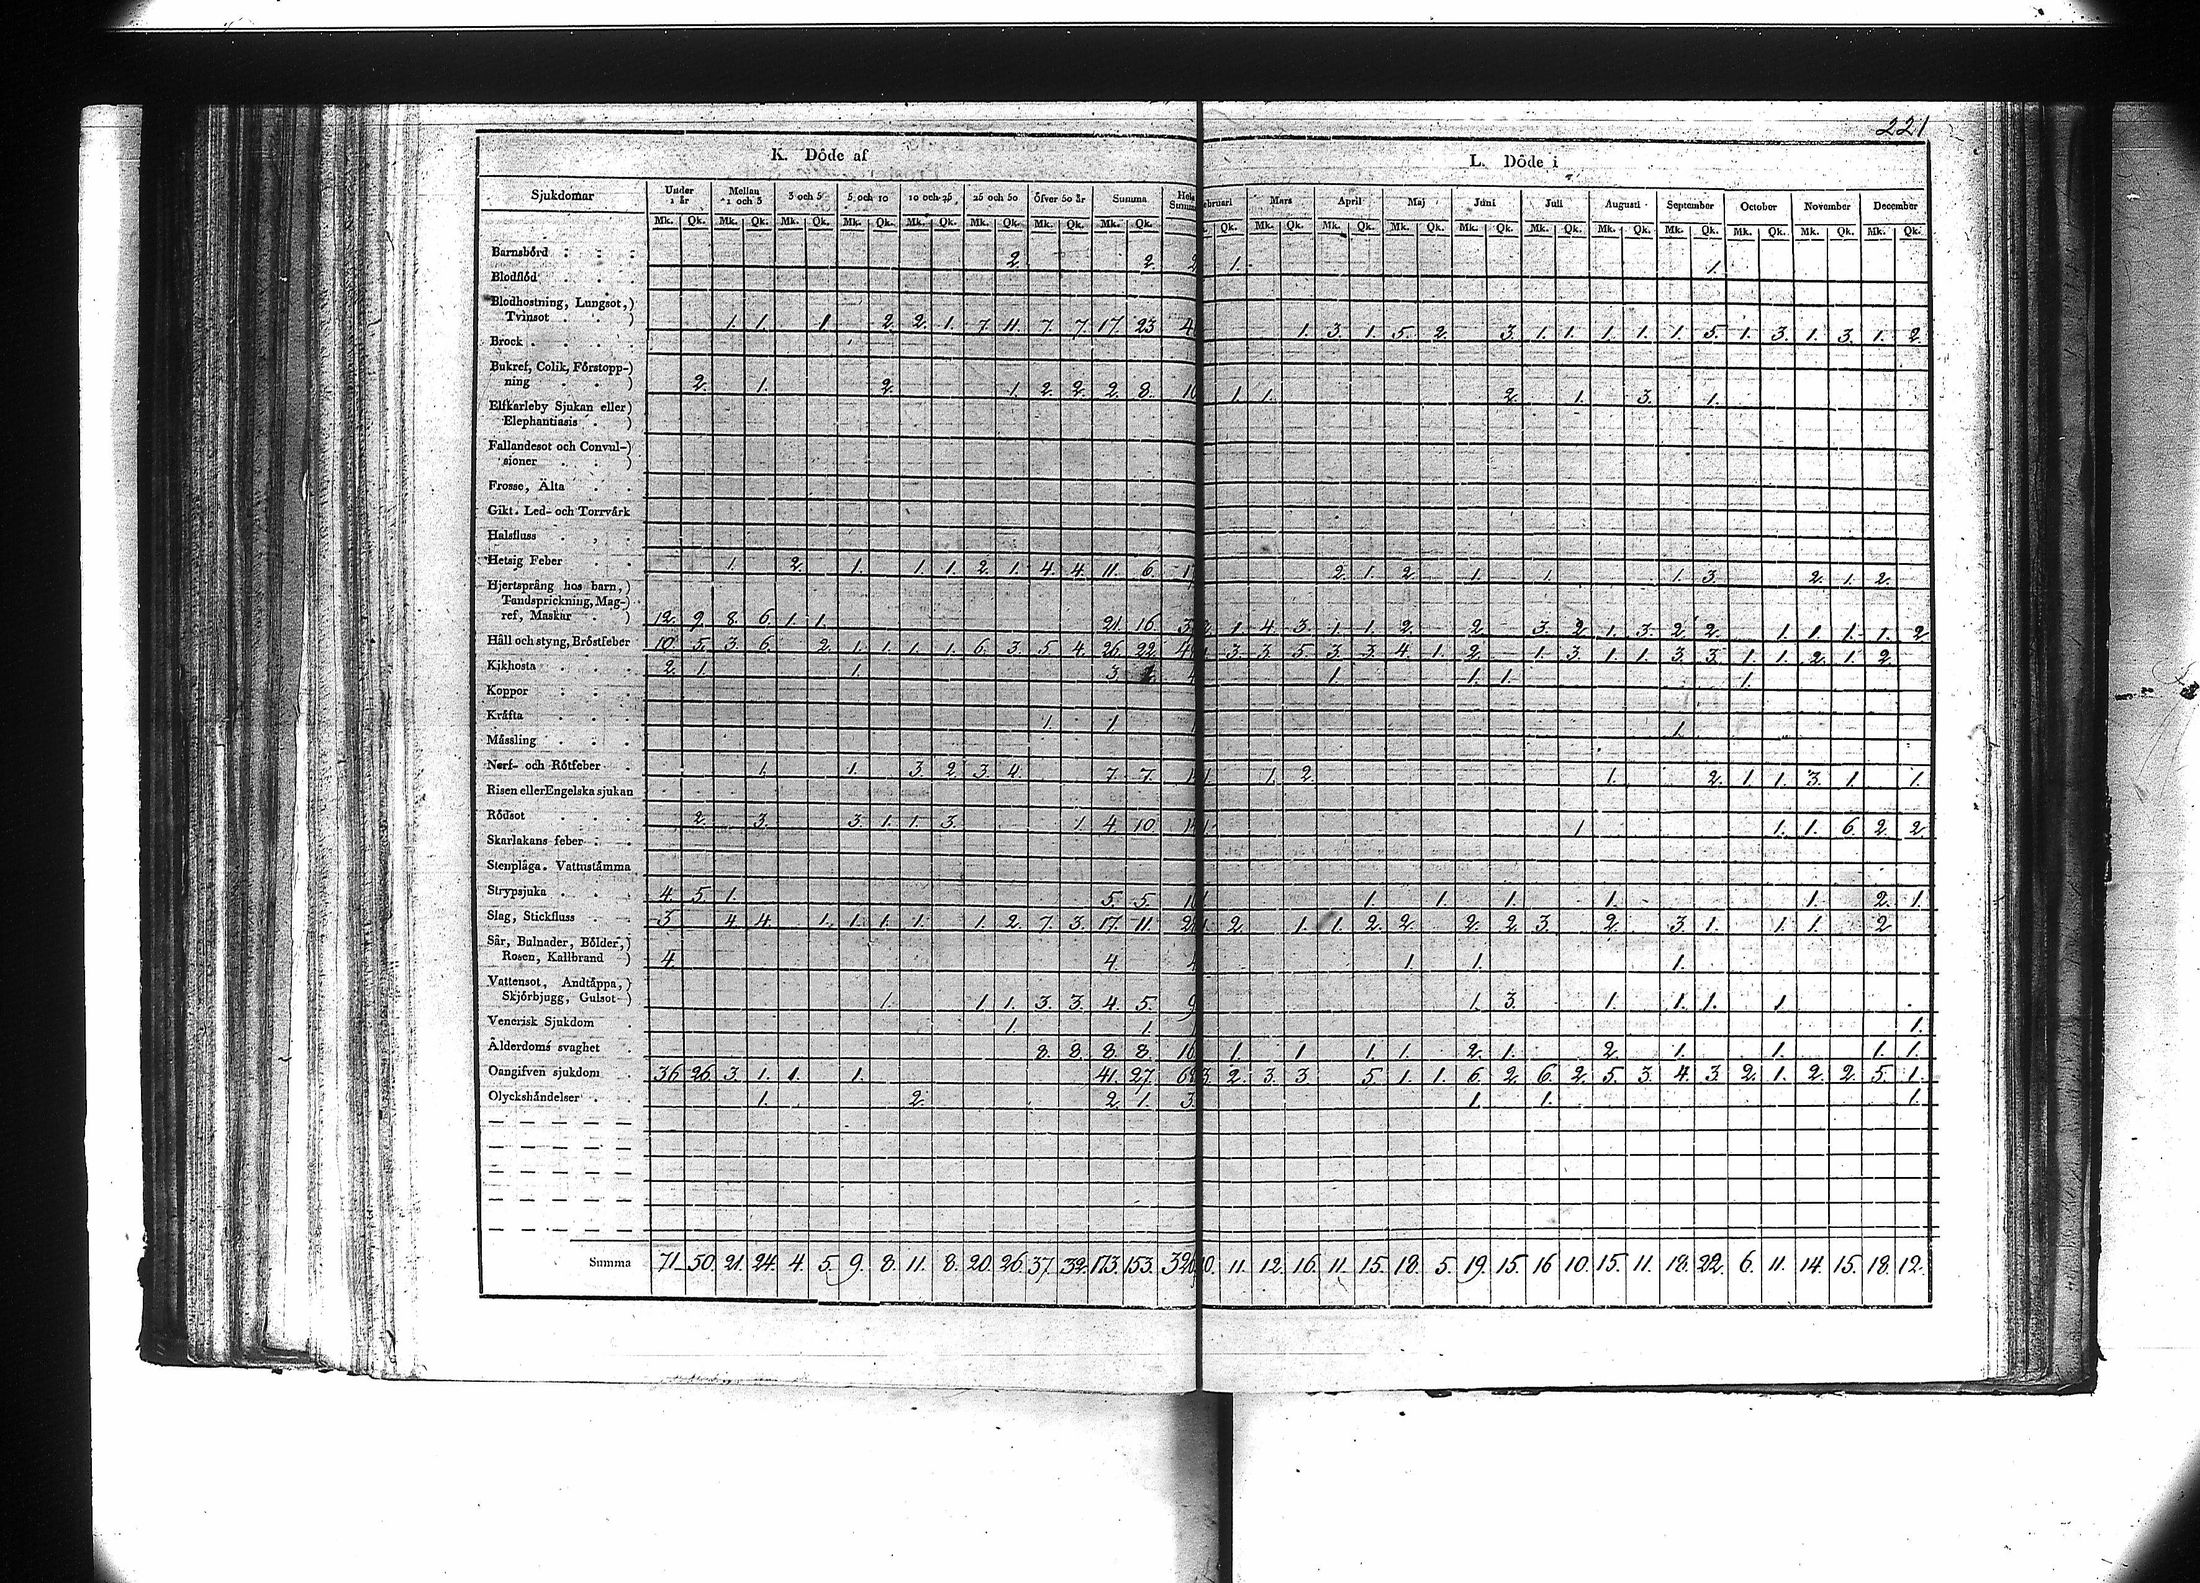 221
K. Döde af L. Döde i
Sjukdomar Under 1 år Mellan 1 och 3 3 och 5 5 och 10 10 och 25 25 och 50 öfver 50 år Summa Hela Summa ebruari Mars April Maj Juni Juli Augusti September October November December
Mk. Qk. Mk. Qk. Mk. Qk. Mk. Qk. Mk. Qk. Mk. Qk. Mk. Qk. Mk. Qk. Qk. Mk. Qk. Mk. Qk. Mk. Qk. Mk. Qk. Mk. Qk. Mk. Qk. Mk. Qk. Mk. Qk. Mk. Qk. Mk. Qk.
Barnsbörd 2. 2. 2 1. 1.
Blodflöd
Blodhostning, Lungsot,)
Tvinsot . . ) 1. 1. 1 2. 2. 1. 7. 11. 7. 7. 17. 23. 4 1. 3. 1. 5. 2. 3. 1. 1. 1. 1. 1. 5. 1. 3. 1. 3. 1. 2.
Brock
Bukref, Colik, Förstopp-)
ning . . ) 2. 1. 2. 1. 2. 2. 2. 8. 10 1. 1. 2. 1. 3. 1.
Elfkarleby Sjukan eller)
Elephantiasis . )
Fallandesot och Convul-)
sioner . . )
Frosse, Älta
Gikt. Led- och Torrvärk
Halsfluss
Hetsig Feber 1. 2. 1. 1. 1. 2. 1. 4. 4. 11. 6. 1 2. 1. 2. 1. 1. 1. 3. 2. 1. 2.
Hjertsprång hos barn,)
Tandsprickning, Mag-)
ref, Maskar . ) 12. 9. 8. 6. 1. 1. 21. 16. 3 2. 1. 4. 3. 1. 1. 2. 2. 3. 2. 1. 3. 2. 2. 1. 1. 1. 1. 2.
Håll och styng, Bröstfeber 10. 5. 3. 6. 2. 1. 1. 1. 1. 6. 3. 5. 4. 26. 22. 4 3. 3. 5. 3. 3. 4. 1. 2. 1. 3. 1. 1. 3. 3. 1. 1. 2. 1. 2.
Kikhosta 2. 1. 1. 3. 4 1. 1. 1. 1.
Koppor
Kräfta 1. 1. 1 1.
Mässling
Nerf- och Rötfeber 1. 1. 3. 2. 3. 4. 7. 7. 1 1. 1. 2. 1. 2. 1. 1. 3. 1. 1.
Risen eller Engelska sjukan
Rödsot 2. 3. 3. 1. 1. 3. 1. 4. 10. 14 1. 1. 1. 1. 6. 2. 2.
Skarlakans feber
Stenplåga. Vattustämma
Strypsjuka 4. 5. 1. 5. 5. 10 1. 1. 1. 1. 1. 2. 1.
Slag, Stickfluss 3. 4. 4. 1. 1. 1. 1. 1. 2. 7. 3. 17. 11. 28 1. 2. 1. 1. 2. 2. 2. 2. 3. 2. 3. 1. 1. 1. 2.
Sår, Bulnader, Bölder,)
Rosen, Kallbrand ) 4. 4. 4 1. 1. 1.
Vattensot, Andtäppa,)
Skjörbjugg, Gulsot ) 1. 1. 1. 3. 3. 4. 5. 9 1. 3. 1. 1. 1. 1.
Venerisk Sjukdom 1. 1. 1.
Ålderdoms svaghet 8. 8. 8. 8. 16 1. 1. 1. 1. 2. 1. 2. 1. 1. 1. 1.
Oangifven sjukdom 36 26. 3. 1. 1. 1. 41. 27. 68 3. 2. 3. 3. 5. 1. 1. 6. 2. 6. 2. 5. 3. 4. 3. 2. 1. 2. 2. 5. 1.
Olyckshändelser 1. 2. 2. 1. 3. 1. 1. 1.
Summa 71. 50. 21. 24. 4. 5. 9. 8. 11. 8. 20. 26. 37. 32. 173. 153. 326 10. 11. 12. 16. 11. 15. 18. 5. 19. 15. 16 10. 15. 11. 18. 22. 6. 11. 14. 15. 18. 12.